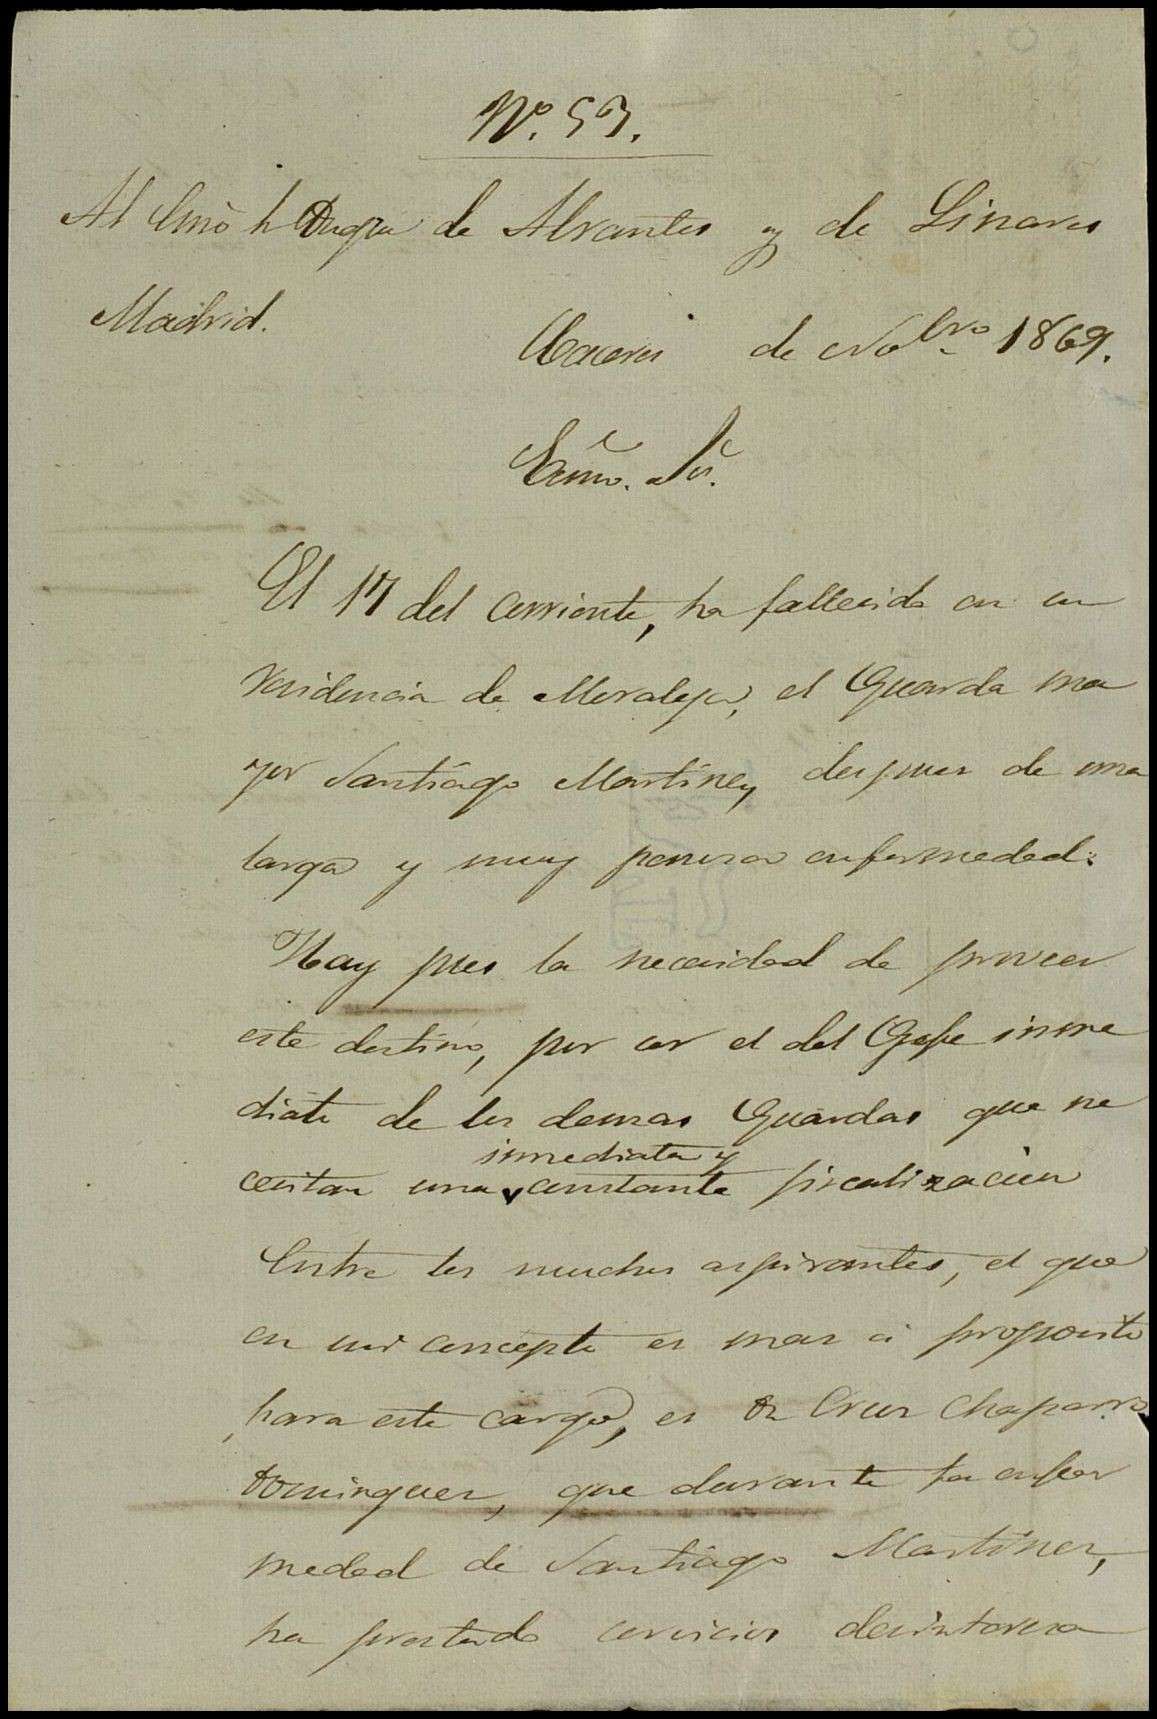 Nº. 53.
Al Emõ Sr Duque de Abrantes y de Linares
Madrid.
Caceres de Nobre 1869.
Exmo. Sr.
El 17 del corriente, ha fallecido en su
residencia de Moraleja, el Guarda ma
yor Santiago Martinez, despues de una
larga y muy penosa enfermedad.
Hay pues la necesidad de proveer
este destino, por ser el del Gefe inme
diato de los demas Guardas que ne
inmediata y
cesitan una constante fiscalizacion
Entre los muchos aspirantes, el que
en mi concepto es mas á proposito
para este cargo, es Dn Cruz Chaparro
Dominguez, que durante la enfer
medad de Santiago Martinez,
ha prestado servicios desinteresa